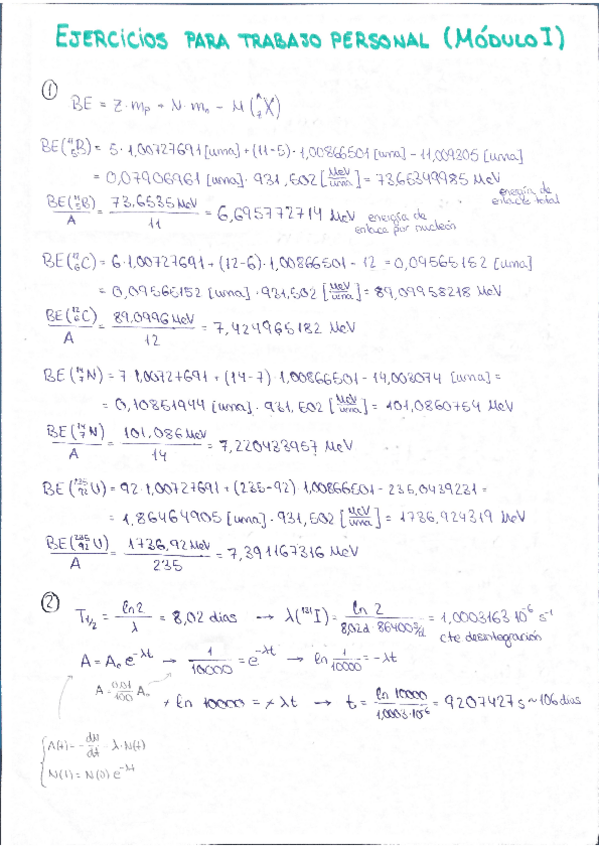 EJERCICIOS PARA TRABAJO PERSONAL (MÓDULO I)
① BE = Z·mp + N·mn - M(ᴬ_Z X)
BE(¹¹₅B) = 5·1,00727691 [uma] + (11-5)·1,00866501 [uma] - 11,009305 [uma]
= 0,07906961 [uma] · 931,502 [MeV/uma] = 73,65349985 MeV energía de enlace total
BE(¹¹₅B)/A = 73,6535 MeV/11 = 6,695772714 MeV energía de enlace por nucleón
BE(¹²₆C) = 6·1,00727691 + (12-6)·1,00866501 - 12 = 0,09565152 [uma]
= 0,09565152 [uma] · 931,502 [MeV/uma] = 89,09958218 MeV
BE(¹²₆C)/A = 89,0996 MeV/12 = 7,424965182 MeV
BE(¹⁴₇N) = 7·1,00727691 + (14-7)·1,00866501 - 14,003074 [uma] =
= 0,10851944 [uma] · 931,502 [MeV/uma] = 101,0860754 MeV
BE(¹⁴₇N)/A = 101,086 MeV/14 = 7,220433957 MeV
BE(²³⁵₉₂U) = 92·1,00727691 + (235-92)·1,00866501 - 235,0439231 =
= 1,86464905 [uma] · 931,502 [MeV/uma] = 1736,924319 MeV
BE(²³⁵₉₂U)/A = 1736,92 MeV/235 = 7,391167316 MeV
② T₁/₂ = ln2/λ = 8,02 dias → λ(¹³¹I) = ln 2/8,02d·86400 s/d = 1,0003163 10⁻⁶ s⁻¹
cte desintegración
A = A₀ e^-λt → 1/10000 = e^-λt → ln 1/10000 = -λt
A = 0,01/100 A₀
+ ln 10000 = + λt → t = ln 10000/1,0003·10⁻⁶ = 9207427 s ~ 106 dias
A(t) = -dN/dt = λ·N(t)
N(t) = N(0) e^-λt